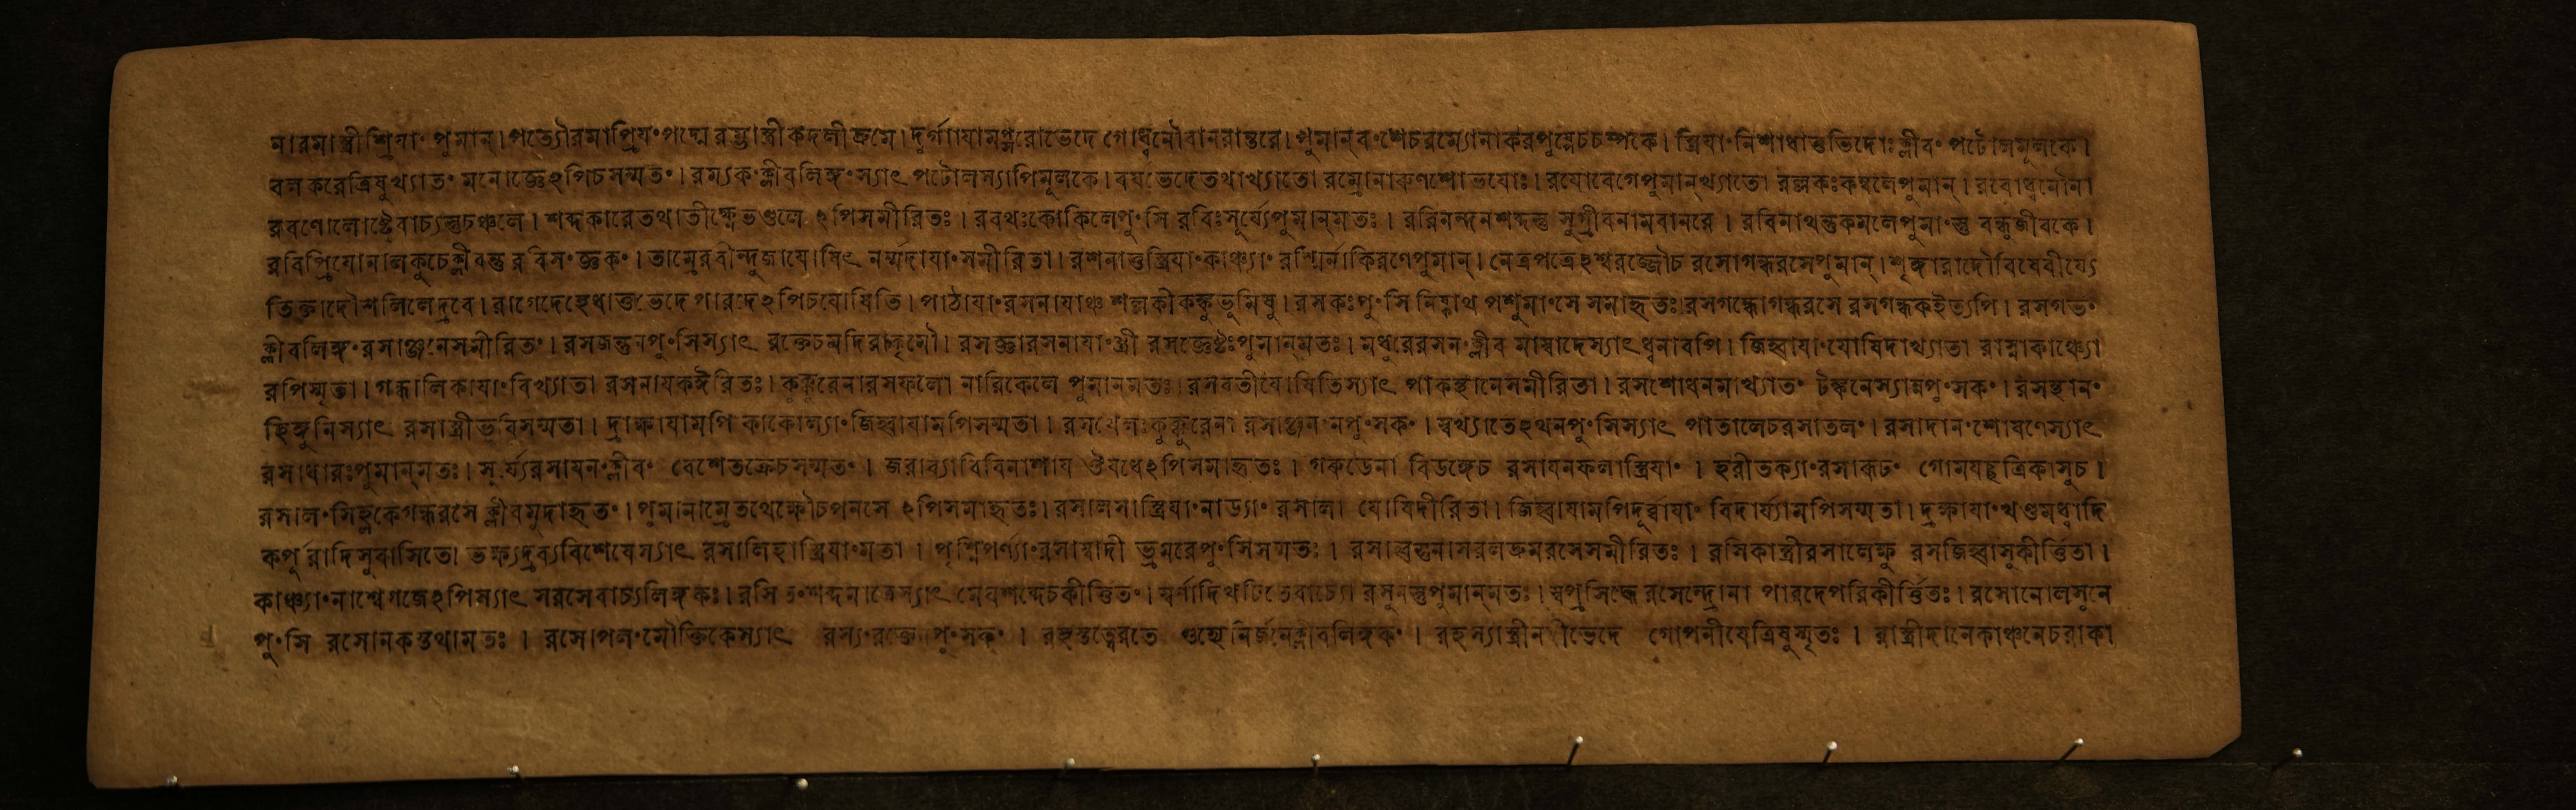 নারমাস্ত্রীশ্রিয়াং পুমান্। পত্যৌরমাপ্রিয়ং পদ্মে রম্ভাস্ত্রীকদলীদ্রুমে। দুর্গায়ামপ্সরোভেদে গোধ্বনৌবানরান্তরে। পুমান্‌বংশেচরম্যোনাকরপুন্নেচচম্পকে। স্ত্রিয়াং নিশাধাত্তভিদোঃক্লীবং পটোলমূলকে।
বলকরেত্রিষুখ্যাতং মনোজ্ঞেঽপিচসম্মতং। রম্যকংক্লীবলিঙ্গংস্যাৎ পটোলস্যাপিমূলকে। বর্ষভেদেতথাখ্যাতো রম্রোনারুণশোভয়োঃ। রয়োবেগেপুমান্‌খ্যাতো রল্লকঃকম্বলেপুমান্। রবোধ্বনৌনা
রবণোলোষ্ট্রেবাচ্যস্তুচঞ্চলে। শব্দকারেতথাতীক্ষ্ণেভণ্ডলে ঽপিসমীরিতঃ। রবথঃকোকিলেপুংসি রবিঃসূর্য্যেপুমান্‌মতঃ। রবিনন্দনশব্দস্তু সুগ্রীবনামবানরে। রবিনাথস্তুকমলেপুমাংস্তু বন্ধুজীবকে।
রবিপ্রিয়োনালকুচেক্লীবন্তু রবিসংজ্ঞকং। তাম্রেরবীন্দুজায়োষিৎ নর্ম্মদায়াংসমীরিতা। রশনাত্তুস্ত্রিয়াংকাঞ্চ্যাং রশ্মির্নাকিরণেপুমান্। নেত্রপত্রেঽশ্বরজ্জৌচ রসোগন্ধরসেপুমান্। শৃঙ্গারাদৌবিষেবীর্য্যে
তিক্তাদৌশলিলেদ্রবে। রাগেদেহেধাত্তভেদেপারদেঽপিচযোষিতি। পাঠায়াংরসনায়াঞ্চ শল্লকীকঙ্কুভূমিষু। রসকঃপুংসি নিষ্কাথ পশুমাংসে সমাহৃতঃ। রসগন্ধোগন্ধরসে রসগন্ধকইত্যপি। রসগর্ভং
ক্লীবলিঙ্গংরসাঞ্জনেসমীরিতং। রসজন্তুনপুংসিস্যাৎ রক্তেচমদিরাকৃমৌ। রসজ্ঞারসনায়াংস্ত্রী রসজ্ঞেষ্টৈঃপুমান্‌মতঃ। মধুরেরসনংক্লীব মাস্বাদেস্যাৎধ্বনাবপি। জিহ্বায়াংযোষিদাখ্যাতা রাস্নাকাঞ্চ্যো
রপিস্মৃতা। গন্ধালিকায়াংবিখ্যাতা রসনায়কঈরিতঃ। কুক্কুরেনারসফলো নারিকেলে পুমান্‌মতঃ। রসবতীযোষিতিস্যাৎ পাকস্থানেসমীরিতা। রসশোধনমাখ্যাতং টঙ্কনেস্যান্নপুংসকং। রসস্থানং
হিঙ্গুনিস্যাৎ রসাস্ত্রীভুবিসম্মতা। দ্রাক্ষায়ামপি কাকোল্যাংজিহ্বায়ামপিসম্মতা। রসখেলঃকুক্কুরেনা রসাঞ্জনংনপুংসকং। স্বখ্যাতেঽথনপুংসিস্যাৎ পাতালেচরসাতলং। রসাদানংশোষণেস্যাৎ
রসাধারঃপুমান্‌মতঃ। সূর্য্যরসায়নংক্লীবং বেশেতক্রেচসম্মতং। জরাব্যাধিবিনাশায় ঔষধেঽপিসমাহৃতঃ। গরুডেনা বিডঙ্গেচ রসায়নফলাস্ত্রিয়াং। হরীতক্যাংরসারূঢং গোময়চ্ছত্রিকাসুচ।
রসালংসিহ্লকেগন্ধরসে ক্লীবমুদাহৃতং। পুমানাম্রেতথেক্ষৌচপনসে ঽপিসমাহৃতঃ। রসালসাস্ত্রিয়াংনাড্যাং রসালা যোষিদীরিতা। জিহ্বায়ামপিদূর্ব্বায়াং বিদার্য্যামপিসম্মতা। দ্রক্ষায়াংখণ্ডমধ্বাদি
কর্পূরাদিসুবাসিতো ভক্ষ্যদ্রব্যবিশেষেস্যাৎ রসালিহাস্ত্রিয়াংমতা। পৃশ্নিপর্ণ্যাংরসাস্বাদী ভ্রমরেপুংসিসম্মতঃ। রসাহ্বস্তুনাসরলদ্রুমরসেসমীরিতঃ। রসিকাস্ত্রীরসালেক্ষু রসজিহ্বাসুকীর্ত্তিতা।
কাঞ্চ্যাংনাশ্বেগজেঽপিস্যাৎ সরসেবাচ্যলিঙ্গকঃ। রসিতংশব্দমাত্রেস্যাৎ মেঘশব্দেচকীর্ত্তিতং। স্বর্ণাদিখচিতেবাচ্যো রসুনস্তুপুমান্‌মতঃ। স্বপ্রসিদ্ধে রসেন্দ্রোনা পারদেপরিকীর্ত্তিতঃ। রসোনোলসুনে
পুংসি রসোনকস্তথামতঃ। রসোপলংমৌক্তিকেস্যাৎ রস্যংরক্তে পুংসকং। রহস্তত্ত্বেরতে গুহ্যেনির্জনেক্লীবলিঙ্গকং। রহস্যাস্ত্রীনদীভেদে গোপনীয়েত্রিষুস্মৃতঃ। রাস্ত্রীদানেকাঞ্চনেচরাকা